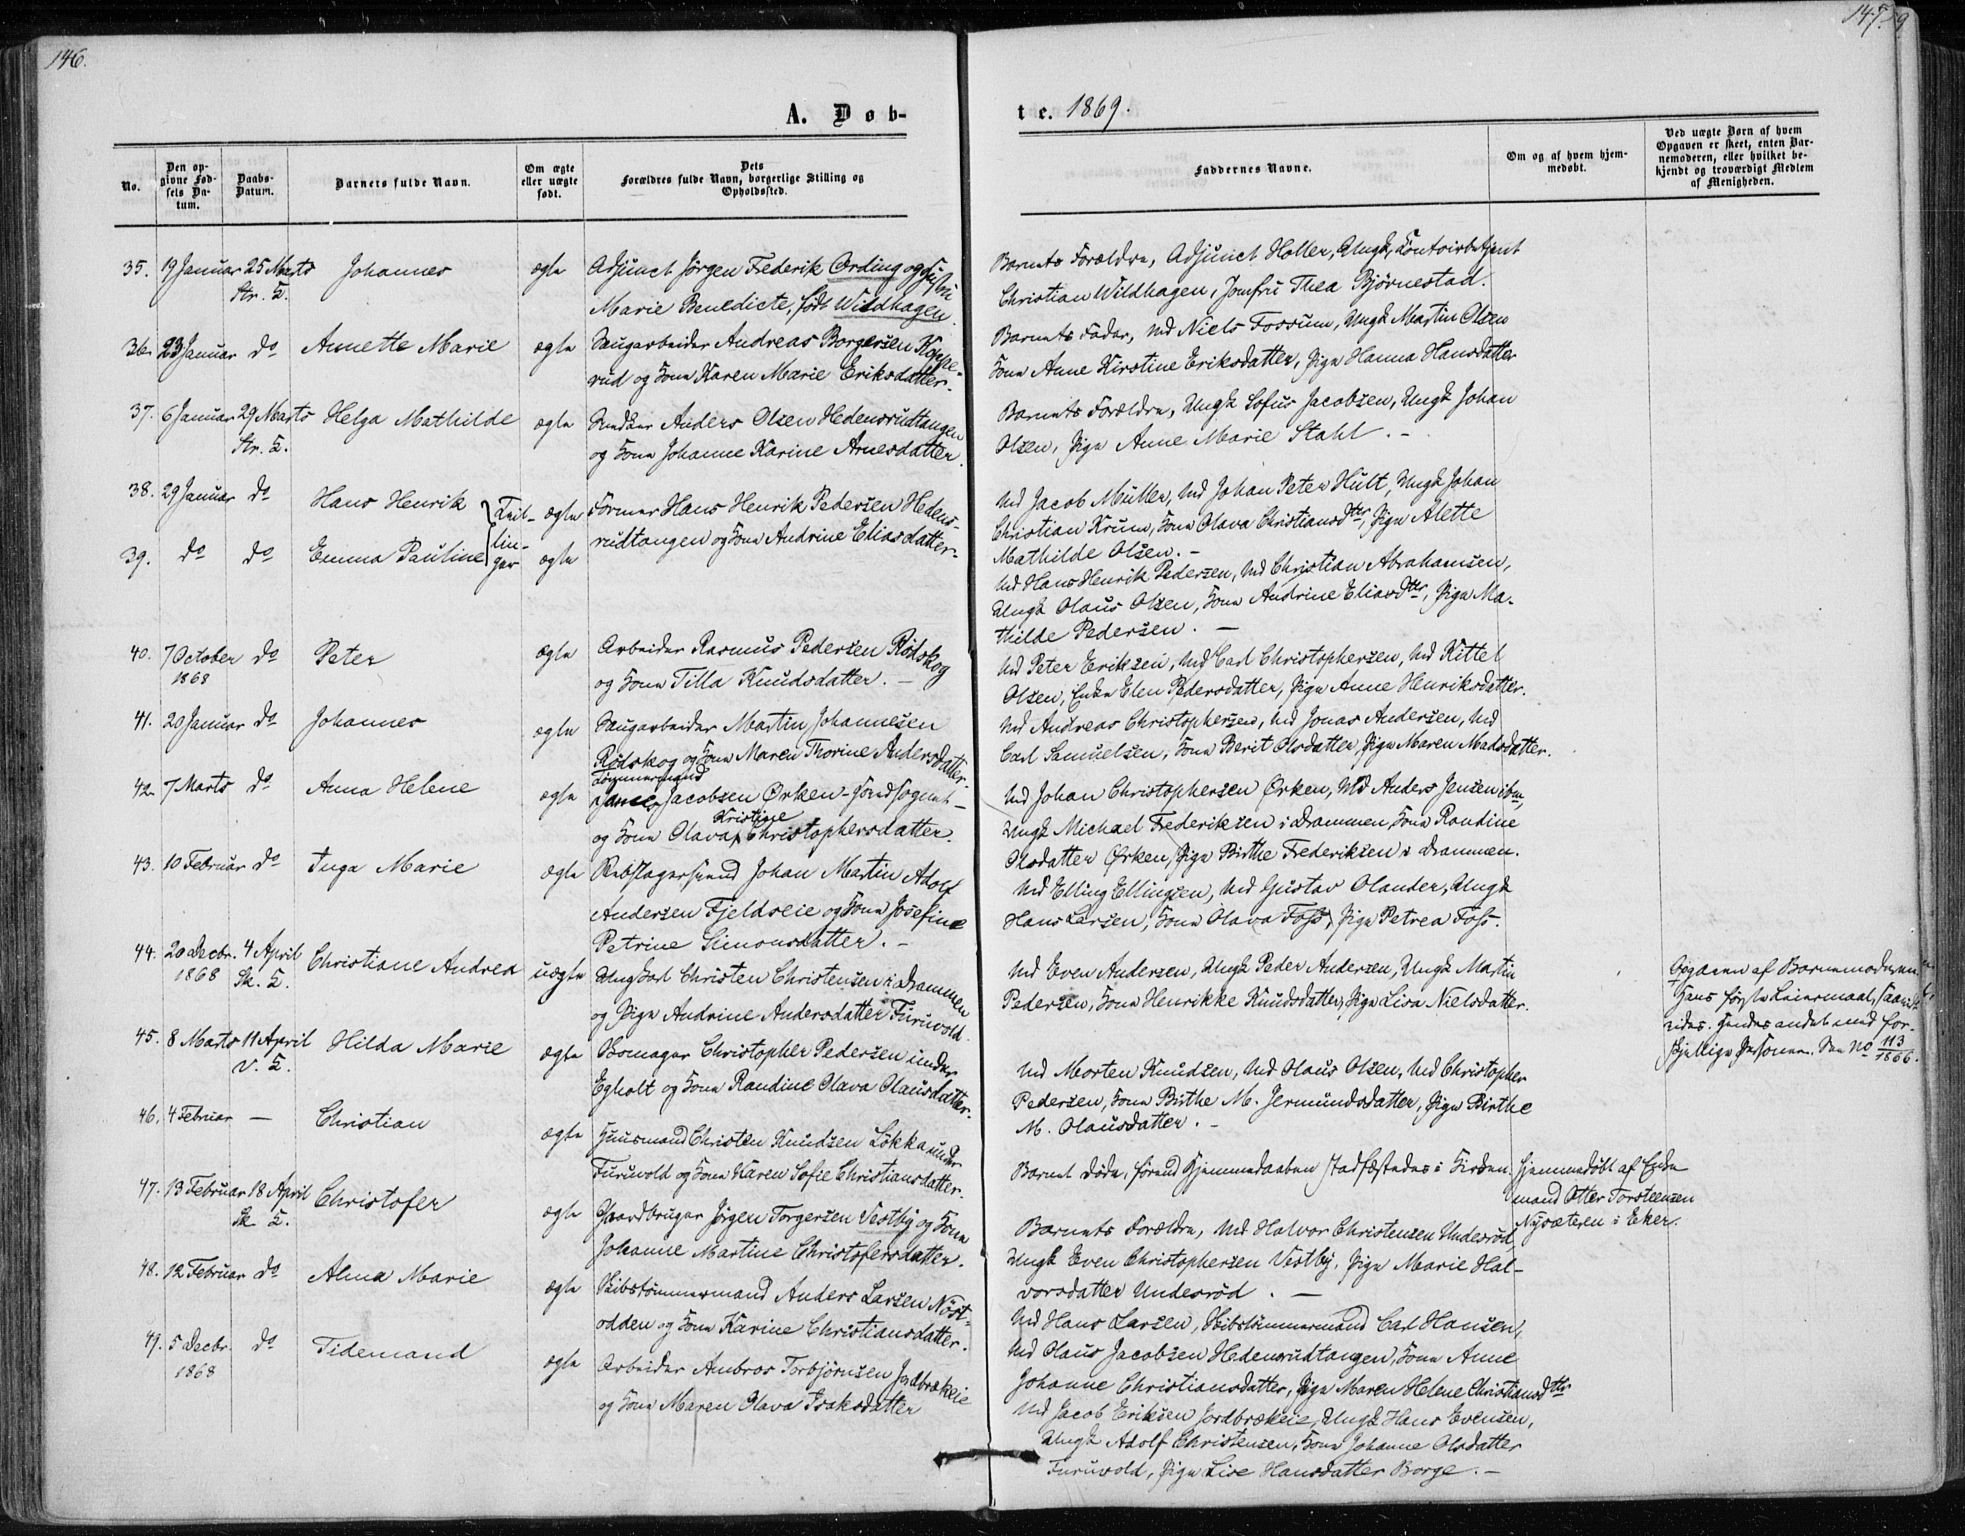 146.
147.
A. Døb-
te. 1869.
No.
Den op-
givne Fød-
sels Da-
tum.
Daabs-
Datum.
Barnets fulde Navn.
Om ægte
eller uægte
født.
Dets
Forældres fulde Navn, borgerlige Stilling og
Opholdssted.
Faddernes Navne.
Om og af hvem hjem-
medøbt.
Ved uægte Børn af hvem
Opgaven er skeet, enten Bar-
nemoderen, eller hvilket be-
kjendt og troværdigt Medlem
af Menigheden.
35. 19 Januar 25 Marts Johannes ægte Adjunct Jørgen Frederik Ording og Hustru
Str. K.
Marie Benedicte, født Wildhagen.
Barnets Forældre, Adjunct Holler, Ungk. Contoirbetjent
Christian Wildhagen, Jomfru Thea Bjørnestad.
36. 23 Januar do Annette Marie ægte Saugarbeider Andreas Borgersen Koppe-
rud og Kone Karen Marie Eriksdatter.
Barnets Fader, Md Niels Fossum, Ungk Martin Olsen
Kone Anne Kirstine Eriksdatter, Pige Hanna Hansdatter
37. 6 Januar 29 Marts Helga Mathilde ægte Anders Olsen Hedensrudtangen
Str. K.
og Kone Johanne Karine Arnesdatter.
Barnets Forældre, Ungk Sofus Jacobsen, Ungk Johan
Olsen, Pige Anne Marie Stahl. -
38. 29 Januar do Hans Henrik Tvil- ægte Former Hans Henrik Pedersen Hedens-
lin-
rudtangen og Kone Andrine Eliasdatter.
39. do do Emma Pauline ger ægte
Md Jacob Müller, Md Johan Peter Hult, Ungk Johan
Christian Krum, Kone Olava Christiansdtr, Pige Alette
Mathilde Olsen. -
Md Hans Henrik Pedersen, Md Christian Abrahamsen,
Ungk Olaus Olsen, Kone Andrine Eliasdtr, Pige Ma-
thilde Pedersen. -
40. 7 October do Peter ægte Arbeider Rasmus Pedersen Rødskog
1868
og Kone Tilla Knudsdatter. -
Md Peter Eriksen, Md Carl Christophersen, Md Kittel
Olsen, Enke Elen Pedersdatter, Pige Anne Henriksdatter.
41. 20 Januar do Johannes ægte Saugarbeider Martin Johannesen
Rødskog og Kone Maren Thorine Andersdatter.
Md Andreas Christophersen, Md Jonas Andersen, Md
Carl Samuelsen, Kone Berit Olsdatter, Pige Maren Madsdatter.
Tømmermand
42. 7 Marts do Anna Helene ægte Jacobsen Ørken - Sognet -
Kristine
og Kone Olava Christophersdatter.
Md Johan Christophersen Ørken, Md Anders Jensen ibm,
Ungk Michael Frederiksen i Drammen, Kone Randine
Olsdatter Ørken, Pige Birthe Frederiksen i Drammen.
43. 10 Februar do Inga Marie ægte Rebslagersvend Johan Martin Adolf
Andersen Fjeldseie og Kone Josefine
Petrine Simonsdatter. -
Md Elling Ellingsen, Md Gustav Olander, Ungk
Hans Larsen, Kone Olava Foss, Pige Petrea Foss.
44. 20 Decbr. 4 April Christiane Andrea uægte Ungkarl Christen Christensen i Drammen
1868 Sk. K.
og Pige Andrine Andersdatter Furuvold.
Md Even Andersen, Ungk Peder Andersen, Ungk Martin
Pedersen, Kone Henrikke Knudsdatter, Pige Lisa Nielsdatter.
Opgaven af Barnemoderen.
Hans første Leiermaal,
vides. Hendes andet med for-
skjellige Personer. See No 113/1866.
45. 8 Marts 11 April Hilda Marie ægte Bomager Christopher Pedersen under
V. K.
Egholt og Kone Randine Olava Olausdatter.
Md Morten Knudsen, Md Olaus Olsen, Md Christopher
Pedersen, Kone Birthe M. Jermundsdatter, Pige Birthe
M. Olausdatter. -
46. 4 Februar - Christian ægte Huusmand Christen Knudsen Løkka under
Furuvold og Kone Karen Sofie Christiansdatter.
Barnet døde, førend Hjemmedaaben stadfæstedes i Kirken.
Hjemmedøbt af Enke
mand Otter Torsteensen
Nysæteren i Eker.
47. 13 Februar 18 April Christofer ægte Gaardbruger Jørgen Torgersen Vestby og Kone
Sk K.
Johanne Martine Christofersdatter.
Barnets Forældre, Md Halvor Christensen Undesrød,
Ungk Even Christophersen Vestby, Pige Marie Hal-
vorsdatter Undesrød. -
48. 12 Februar do Alma Marie ægte Skibstømmermand Anders Larsen Nøst-
odden og Kone Karine Christiansdatter.
Md Hans Larsen, Skibstømmermand Carl Hansen,
Md Olaus Jacobsen Hedensrudtangen, Kone Anne
Johanne Christiansdatter, Pige Maren Helene Christiansdtr
49. 5 Decbr. do Tidemand ægte Arbeider Ambros Torbjørnsen Jordbrækeie
1868
og Kone Maren Olava Isaksdatter
Md Jacob Eriksen Jordbrækeie, Ungk Hans Evensen,
Ungk Adolf Christensen, Kone Johanne Olsdatter
Furuvold, Pige Lise Hansdatter Borge. -